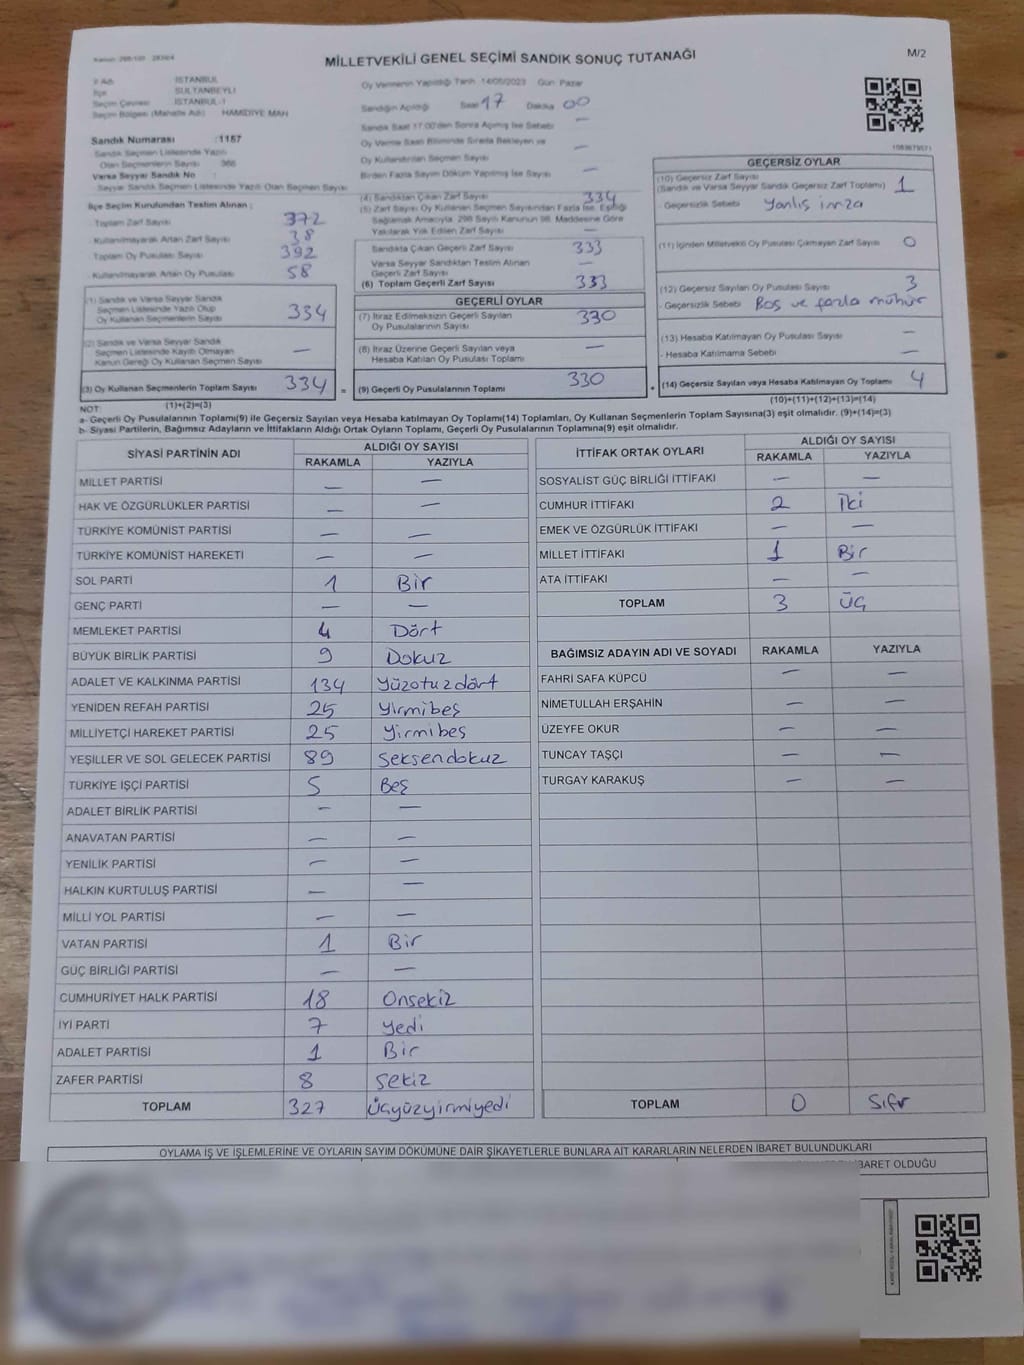 MİLLETVEKİLİ GENEL SEÇİMİ SANDIK SONUÇ TUTANAĞI
M/2
İl Adı : İSTANBUL
İlçe : SULTANBEYLİ
Seçim Çevresi : İSTANBUL-1
Seçim Bölgesi (Mahalle Adı) : HAMİDİYE MAH
Sandık Numarası : 1157
Sandık Seçmen Listesinde Yazılı
Olan Seçmenlerin Sayısı : 366
Varsa Seyyar Sandık No :
Seyyar Sandık Seçmen Listesinde Yazılı Olan Seçmen Sayısı
İlçe Seçim Kurulundan Teslim Alınan ;
- Toplam Zarf Sayısı 372
- Kullanılmayarak Artan Zarf Sayısı 38
- Toplam Oy Pusulası Sayısı 392
- Kullanılmayarak Artan Oy Pusulası 58
(1) Sandık ve Varsa Seyyar Sandık
Seçmen Listesinde Yazılı Olup
Oy Kullanan Seçmenlerin Sayısı 334
(2) Sandık ve Varsa Seyyar Sandık
Seçmen Listesinde Kayıtlı Olmayan
Kanun Gereği Oy Kullanan Seçmen Sayısı —
(3) Oy Kullanan Seçmenlerin Toplam Sayısı 334 =
(1)+(2)=(3)
Oy Vermenin Yapıldığı Tarih 14/05/2023 Gün Pazar
Sandığın Açıldığı Saat 17 Dakika 00
Sandık Saat 17:00'den Sonra Açılmış İse Sebebi —
Oy Verme Saati Bitiminde Sırada Bekleyen ve
Oy Kullandırılan Seçmen Sayısı —
Birden Fazla Sayım Döküm Yapılmış İse Sayısı —
(4) Sandıktan Çıkan Zarf Sayısı 334
(5) Zarf Sayısı Oy Kullanan Seçmen Sayısından Fazla İse, Eşitliği
Sağlamak Amacıyla, 298 Sayılı Kanunun 98. Maddesine Göre
Yakılarak Yok Edilen Zarf Sayısı —
Sandıkta Çıkan Geçerli Zarf Sayısı 333
Varsa Seyyar Sandıktan Teslim Alınan
Geçerli Zarf Sayısı —
(6) Toplam Geçerli Zarf Sayısı 333
GEÇERLİ OYLAR
(7) İtiraz Edilmeksizin Geçerli Sayılan
Oy Pusulalarının Sayısı 330
(8) İtiraz Üzerine Geçerli Sayılan veya
Hesaba Katılan Oy Pusulası Toplamı —
(9) Geçerli Oy Pusulalarının Toplamı 330 +
GEÇERSİZ OYLAR
(10) Geçersiz Zarf Sayısı
(Sandık ve Varsa Seyyar Sandık Geçersiz Zarf Toplamı) 1
- Geçersizlik Sebebi yanlış imza
(11) İçinden Milletvekili Oy Pusulası Çıkmayan Zarf Sayısı 0
(12) Geçersiz Sayılan Oy Pusulası Sayısı 3
- Geçersizlik Sebebi Boş ve fazla mühür
(13) Hesaba Katılmayan Oy Pusulası Sayısı —
- Hesaba Katılmama Sebebi —
(14) Geçersiz Sayılan veya Hesaba Katılmayan Oy Toplamı 4
(10)+(11)+(12)+(13)=(14)
NOT:
a- Geçerli Oy Pusulalarının Toplamı(9) ile Geçersiz Sayılan veya Hesaba katılmayan Oy Toplamı(14) Toplamları, Oy Kullanan Seçmenlerin Toplam Sayısına(3) eşit olmalıdır. (9)+(14)=(3)
b- Siyasi Partilerin, Bağımsız Adayların ve İttifakların Aldığı Ortak Oyların Toplamı, Geçerli Oy Pusulalarının Toplamına(9) eşit olmalıdır.
SİYASİ PARTİNİN ADI ALDIĞI OY SAYISI
RAKAMLA YAZIYLA
MİLLET PARTİSİ — —
HAK VE ÖZGÜRLÜKLER PARTİSİ — —
TÜRKİYE KOMÜNİST PARTİSİ — —
TÜRKİYE KOMÜNİST HAREKETİ — —
SOL PARTİ 1 Bir
GENÇ PARTİ — —
MEMLEKET PARTİSİ 4 Dört
BÜYÜK BİRLİK PARTİSİ 9 Dokuz
ADALET VE KALKINMA PARTİSİ 134 yüzotuzdört
YENİDEN REFAH PARTİSİ 25 yirmibeş
MİLLİYETÇİ HAREKET PARTİSİ 25 yirmibeş
YEŞİLLER VE SOL GELECEK PARTİSİ 89 seksendokuz
TÜRKİYE İŞÇİ PARTİSİ 5 Beş
ADALET BİRLİK PARTİSİ — —
ANAVATAN PARTİSİ — —
YENİLİK PARTİSİ — —
HALKIN KURTULUŞ PARTİSİ — —
MİLLİ YOL PARTİSİ — —
VATAN PARTİSİ 1 Bir
GÜÇ BİRLİĞİ PARTİSİ — —
CUMHURİYET HALK PARTİSİ 18 Onsekiz
İYİ PARTİ 7 yedi
ADALET PARTİSİ 1 Bir
ZAFER PARTİSİ 8 sekiz
TOPLAM 327 üçyüzyirmiyedi
İTTİFAK ORTAK OYLARI ALDIĞI OY SAYISI
RAKAMLA YAZIYLA
SOSYALİST GÜÇ BİRLİĞİ İTTİFAKI — —
CUMHUR İTTİFAKI 2 İki
EMEK VE ÖZGÜRLÜK İTTİFAKI — —
MİLLET İTTİFAKI 1 Bir
ATA İTTİFAKI — —
TOPLAM 3 üç
BAĞIMSIZ ADAYIN ADI VE SOYADI RAKAMLA YAZIYLA
FAHRİ SAFA KÜPCÜ — —
NİMETULLAH ERŞAHİN — —
ÜZEYFE OKUR — —
TUNCAY TAŞÇI — —
TURGAY KARAKUŞ — —
TOPLAM 0 Sıfır
OYLAMA İŞ VE İŞLEMLERİNE VE OYLARIN SAYIM DÖKÜMÜNE DAİR ŞİKAYETLERLE BUNLARA AİT KARARLARIN NELERDEN İBARET BULUNDUKLARI
İBARET OLDUĞU